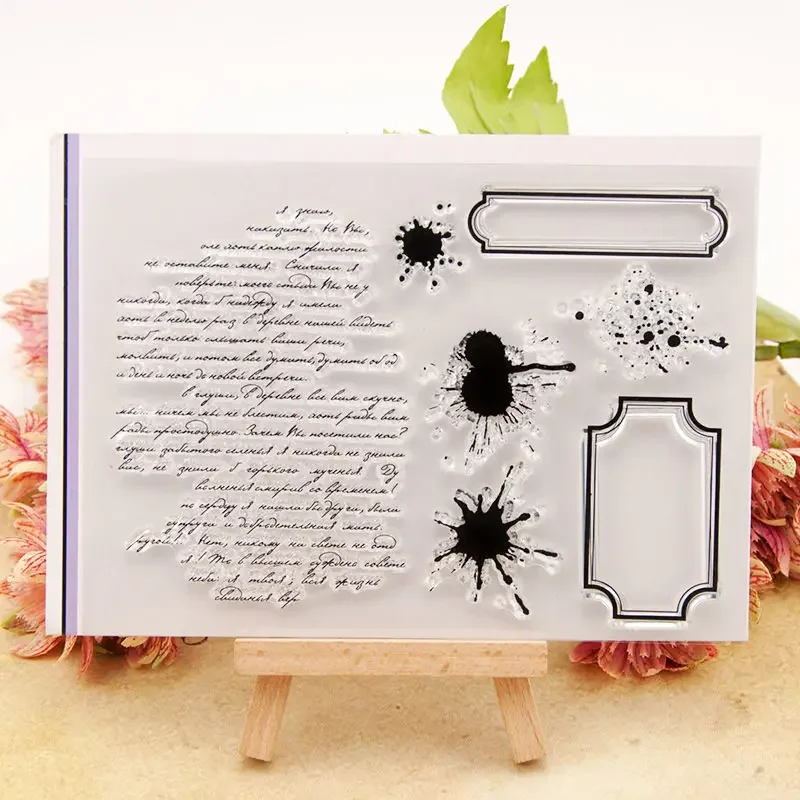 я знаю,
наказать. Но Вы,
оле хоть каплю жалости
не оставите меня. Сначала я
поверьте: моего стыда Вы не у
никогда, когда б надежду я имела
хоть в неделю раз в деревне нашей видеть
чтоб только слышать ваши речи,
молвить, и потом все думать, думать об од
и день и ночь до новой встречи.
в глуши, в деревне все вам скучно,
мы... ничем мы не блестим, хоть рады вам
рады простодушно. Зачем Вы посетили нас?
глуши забытого селенья я никогда не знали
вас, не знали б горького мученья. Ду
волненья смирив со временем!
по сердцу я нашли бы друга, были
супруги и добродетельная мать.
ругой!.. Нет, никому на свете не отд
я! То в вышнем суждено совете
неба: я твоя; вся жизнь
свиданья вер